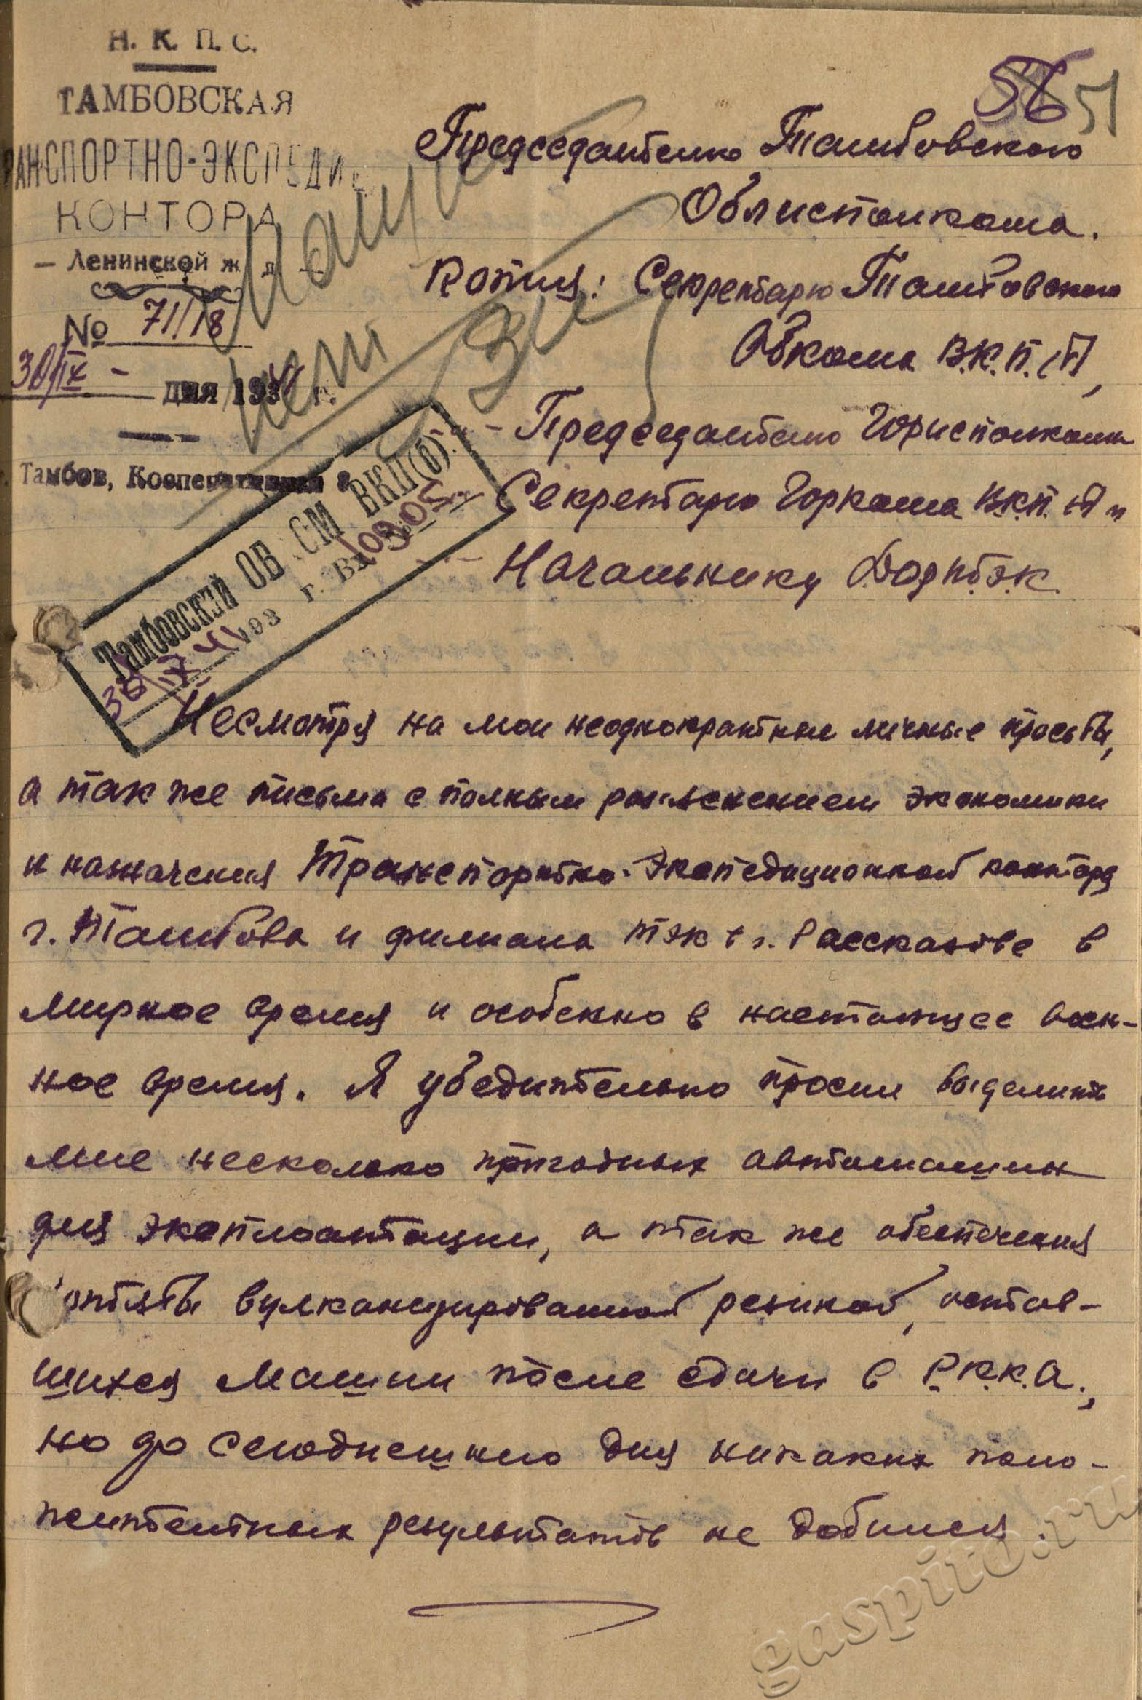 Н. К. П. С.
ТАМБОВСКАЯ
РАНСПОРТНО-ЭКСПЕДИ
КОНТОРА
— Ленинской ж. д. —
№ 71/18
30/IX - дня 193 г.
Тамбов, Кооперативная 8
56 51
Председателю Тамбовского
Облисполкома.
Копия: Секретарю Тамбовского
Обкома В.К.П.(б),
- Председателю Горисполкома
- Секретарю Горкома ВКП(б) и
- Начальнику
Тамбовский ОВ СМ ВКП(б)
30/IX 41 193 г. Вх. №
Несмотря на мои неоднократные личные просьбы,
а так же письма с полным разъяснением экономики
и назначения Транспортно-Экспедиционной конторы
г. Тамбова и филиала ТЭК в г. Рассказове в
мирное время и особенно в настоящее воен-
ное время. Я убедительно просил выделить
мне несколько пригодных автомашин
для эксплоатации, а так же обеспечения
хотябы вулканизированной резиной, остав-
шихся машин после сдачи в Р.К.К.А.,
но до сегоднешнего дня никаких поло-
жительных результатов не добился.
gaspito.ru